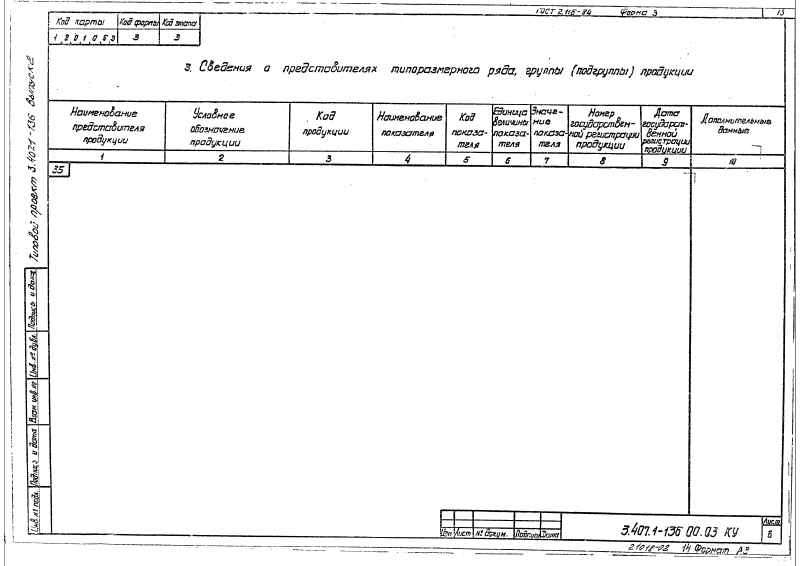 ГОСТ 2.116-84 Форма 3 13
Код карты Код формы Код этапа
1 2 0 1 0 6 0 3 3
3. Сведения о представителях типоразмерного ряда, группы (подгруппы) продукции
Наименование представителя продукции
Условное обозначение продукции
Код продукции
Наименование показателя
Код показа-
теля
Единица величины показа-
теля
Значе-
ние показа-
теля
Номер государствен-
ной регистрации продукции
Дата государст-
венной регистрации продукции
Дополнительные данные
1 2 3 4 5 6 7 8 9 10
35
Типовой проект 3.407.1-136 Выпуск 2
Подпись и дата
Инв. № дубл.
Взам. инв. №
Подпись и дата
Инв. № подл.
Изм Лист № докум. Подпись Дата
3.407.1-136 00.03 КУ
Лист
6
21018-02 14 Формат А3